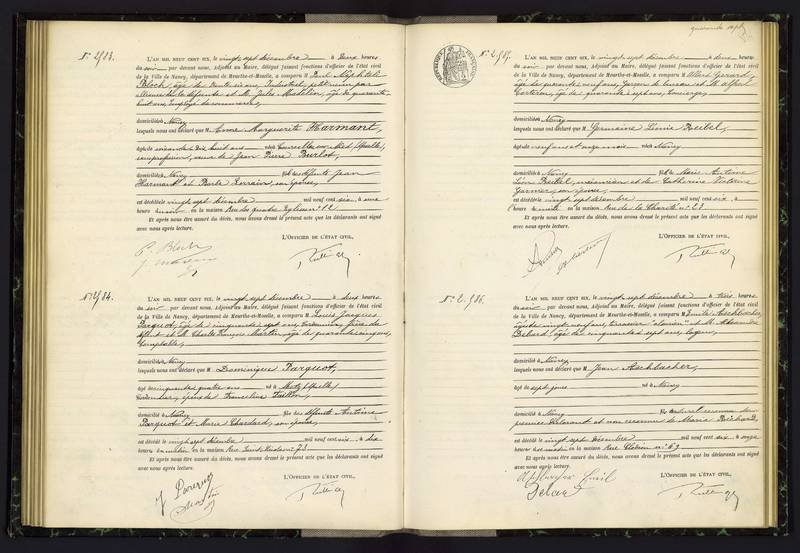 quarante sept
N° 2983.
L'AN MIL NEUF CENT SIX, le vingt sept décembre à deux heures
du soir par devant nous, Adjoint au Maire, délégué faisant fonctions d'officier de l'état civil
de la Ville de Nancy, département de Meurthe-et-Moselle, a comparu M Paul Nephtali
Bloch, âgé de trente six ans, Industriel, petit neveu par
alliance de la défunte et M. Jules Madelin, âgé de quarante
huit ans, Employé de commerce,
domiciliés à Nancy
lesquels nous ont déclaré que M Anne Marguerite Harmant,
âgée de soixante dix huit ans née à Courcelles sur Nied (Moselle),
sans profession, veuve de Jean Pierre Burlot,
domiciliée à Nancy fille des défunts Jean
Harmant et Barbe Lorrain, son épouse,
est décédée le vingt sept décembre mil neuf cent six à une
heure du matin en la maison Rue des quatre Eglises n° 12
Et après nous être assuré du décès, nous avons dressé le présent acte que les déclarants ont signé
avec nous après lecture.
L'OFFICIER DE L'ÉTAT CIVIL,
P. Bloch
J. Madelin
N° 2984.
L'AN MIL NEUF CENT SIX, le vingt sept décembre à deux heures
du soir par devant nous, Adjoint au Maire, délégué faisant fonctions d'officier de l'état civil
de la Ville de Nancy, département de Meurthe-et-Moselle, a comparu M Louis Jacques
Parquot, âgé de cinquante sept ans, Cordonnier, frère du
défunt et M. Charles François Martin âgé de quarante cinq ans,
Comptable,
domiciliés à Nancy
lesquels nous ont déclaré que M Dominique Parquot,
âgé de cinquante quatre ans né à Metz (Moselle)
Cordonnier, époux de
domicilié à Nancy fils des défunts Antoine
Parquot et Marie Chardard, son épouse,
est décédé le vingt sept décembre mil neuf cent six à dix
heures du matin en la maison Rue Saint Nicolas n° 72
Et après nous être assuré du décès, nous avons dressé le présent acte que les déclarants ont signé
avec nous après lecture.
L'OFFICIER DE L'ÉTAT CIVIL,
J Parquot
Martin
N° 2.985.
L'AN MIL NEUF CENT SIX, le vingt sept décembre à deux heures
du soir par devant nous, Adjoint au Maire, délégué faisant fonctions d'officier de l'état civil
de la Ville de Nancy, département de Meurthe-et-Moselle, a comparu M Albert Gérard,
âgé de quarante neuf ans, Garçon de bureau et M. Alfred
âgé de quarante sept ans, Concierge,
domiciliés à Nancy
lesquels nous ont déclaré que M Germaine Léonie Beibel,
âgée de neuf ans et onze mois née à Nancy
domiciliée à Nancy fille de Marie Antoine
Léon Beibel, mécanicien et de Catherine Victorine
Garnier, son épouse,
est décédée le vingt sept décembre mil neuf cent six à une
heure du matin en la maison Rue de la Charité n° 28
Et après nous être assuré du décès, nous avons dressé le présent acte que les déclarants ont signé
avec nous après lecture.
L'OFFICIER DE L'ÉTAT CIVIL,
N° 2.986.
L'AN MIL NEUF CENT SIX, le vingt sept décembre à trois heures
du soir par devant nous, Adjoint au Maire, délégué faisant fonctions d'officier de l'état civil
de la Ville de Nancy, département de Meurthe-et-Moselle, a comparu M Emile Aschbacher,
âgé de vingt neuf ans, Terrassier "témoin" et M. Alexandre
Delard âgé de cinquante sept ans, logeur,
domiciliés à Nancy
lesquels nous ont déclaré que M Jean Aschbacher,
âgé de sept jours né à Nancy
domicilié à Nancy fils naturel reconnu du
premier déclarant et non reconnu de Maria Reichard,
est décédé le vingt sept décembre mil neuf cent six à onze
heures du matin en la maison Rue Clodion n° 69
Et après nous être assuré du décès, nous avons dressé le présent acte que les déclarants ont signé
avec nous après lecture.
L'OFFICIER DE L'ÉTAT CIVIL,
Aschbacher Emil
Delard